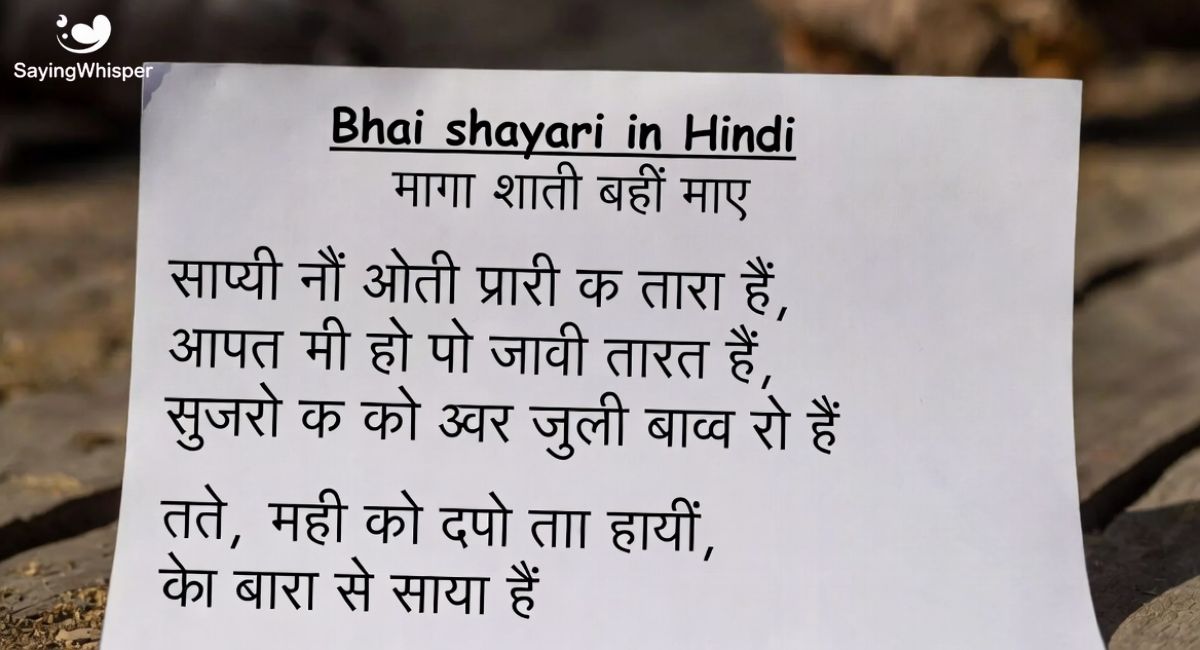 SayingWhisper
Bhai shayari in Hindi
मागा शाती बहीं माए
साप्यी नौं ओती प्रारी क तारा हैं,
आपत मी हो पो जावी तारत हैं,
सुजरो क को ॳवर जुली बाव्व रो हैं
तते, मही को दपो ताा हायीं,
केा बारा से साया हैं